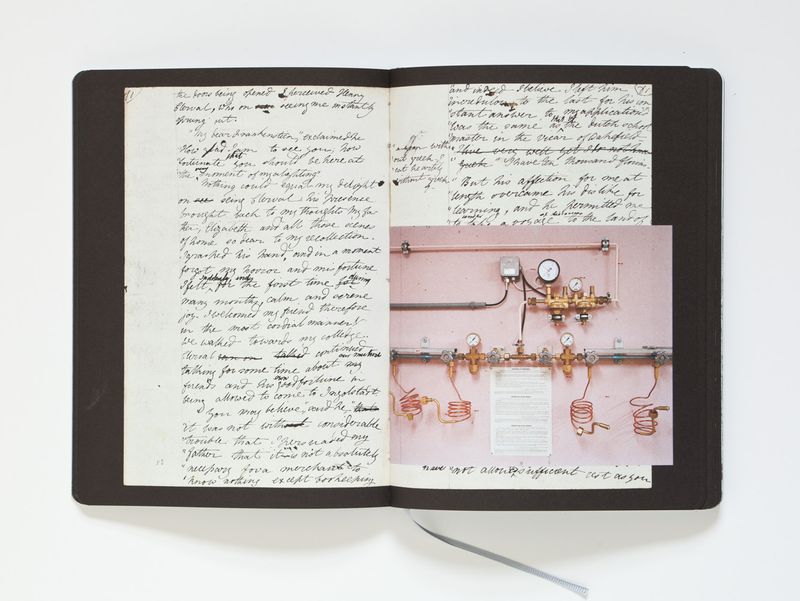 the doors being opened I perceived Henry
Clerval, who on seeing me instantly
sprung out.
"My dear Frankenstein," exclaimed he
"How glad I am to see you, how
fortunate that you should be here at
the very moment of my alighting."
Nothing could equal my delight
on seeing Clerval; his presence
brought back to my thoughts my fa
ther, Elizabeth and all those scenes
of home so dear to my recollection.
I grasped his hand, and in a moment
forgot my horror and misfortune
I felt suddenly, for the first time during
many months, calm and serene
joy. I welcomed my friend therefore
in the most cordial manner &
we walked towards my college.
Clerval talked continued
talking for some time about our mutual
friends and his own good fortune in
being allowed to come to Ingolstadt
"You may believe," said he,
"it was not without considerable
"trouble that I persuaded my
"father that it is not absolutely
"necessary for a merchant to
"know nothing except bookkeeping
and I believe I left him
incredulous to the last for his con
"stant answer to my application
"was the same as the dutch school
"master in the Vicar of Wakefield
"I have ten thousand florins
a year without
out greek, I
eat heartily
without greek
"But his affection for me at
length overcame his dislike for
"learning, and he permitted me
to a voyage of discovery to the land of
have "not allowed sufficient not as you